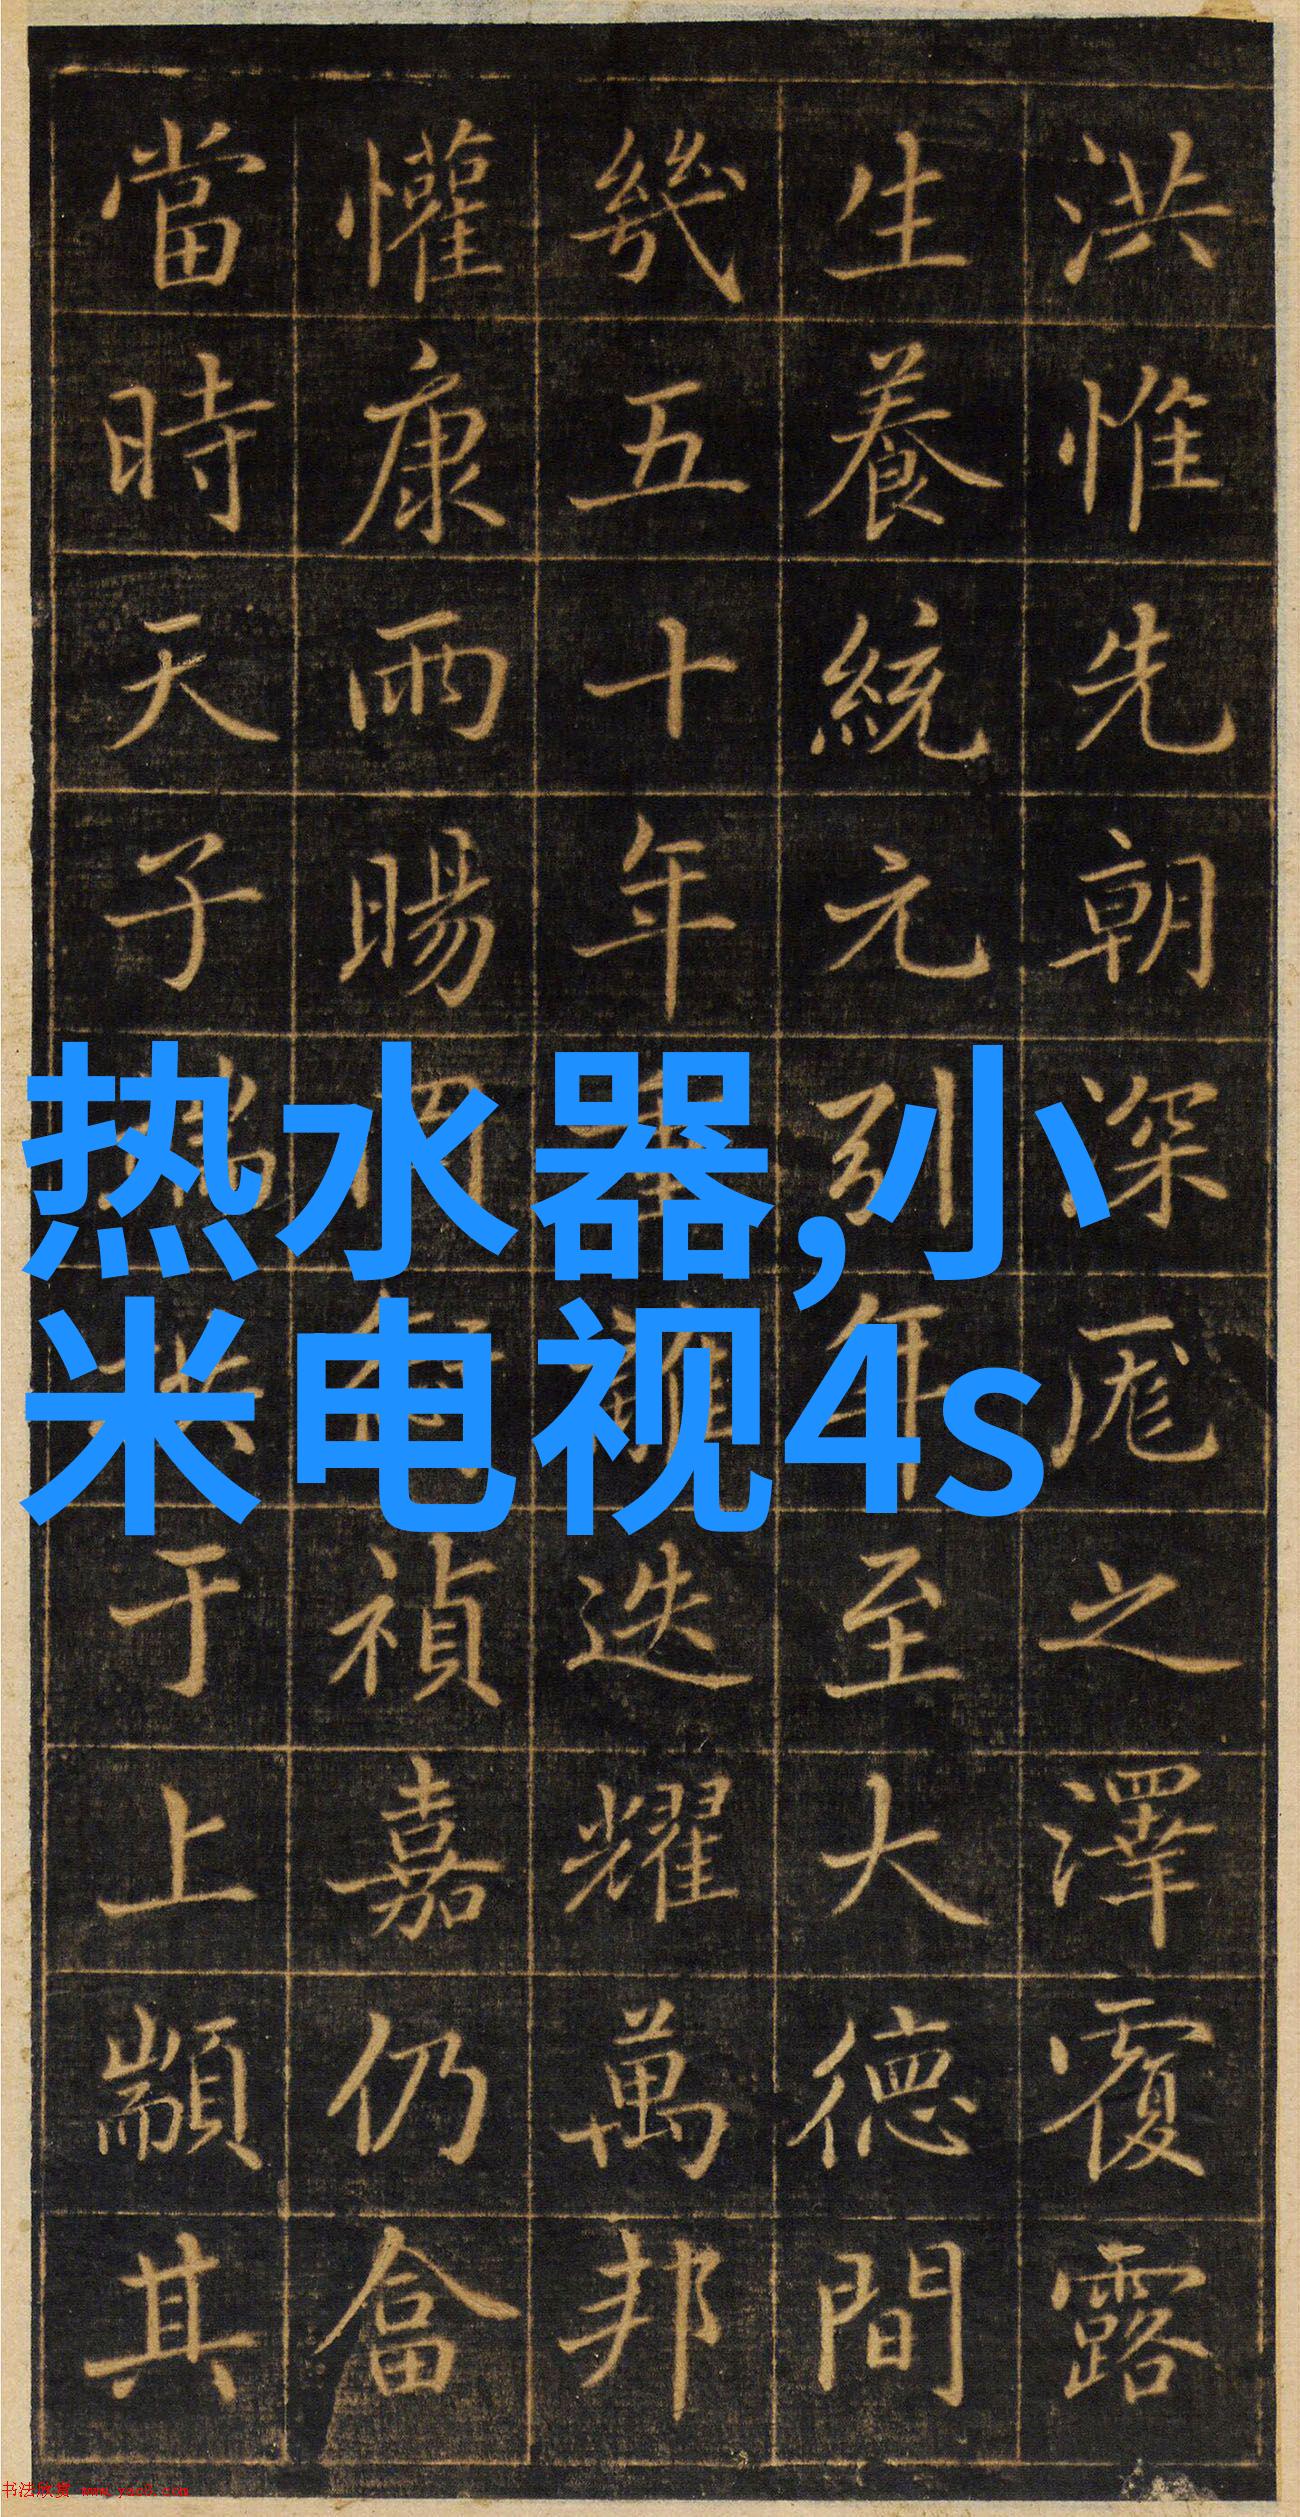 洪惟先朝深厖之澤覆露
生養統元列年至大德間
幾五十年重離迭耀萬邦
懽康雨暘禎嘉仍畣
當時天子端拱于上顒其
热水器,小
米电视4s
书法欣赏 www.yac8.com